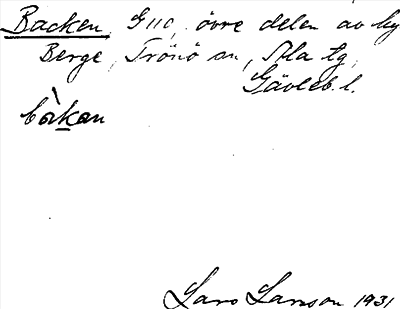 Backen, G 11c, övre delen av by
Berge, Trönö sn, Ala tg,
Gävleb. l.
bàkan
Lars Larsson 1931